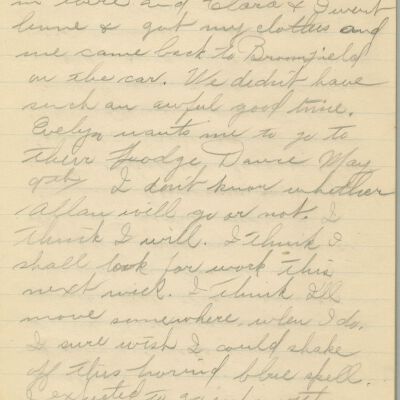 in there and Clara & I went
home & got my clothes and
we came back to Broomfield
on the car. We didn't have
such an awful good time.
Evelyn wants me to go to
their Lodge Dance May
9th. I don't know whether
Allan will go or not. I
think I will. I think I
shall look for work this
next week. I think I'll
move somewhere when I do.
I sure wish I could shake
off this horrid blue spell.
I expected to go